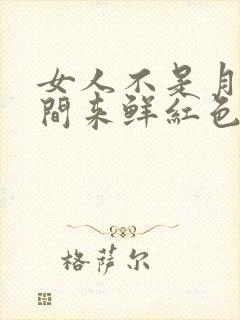 女人不是月
間来鮮紅色
格萨尔